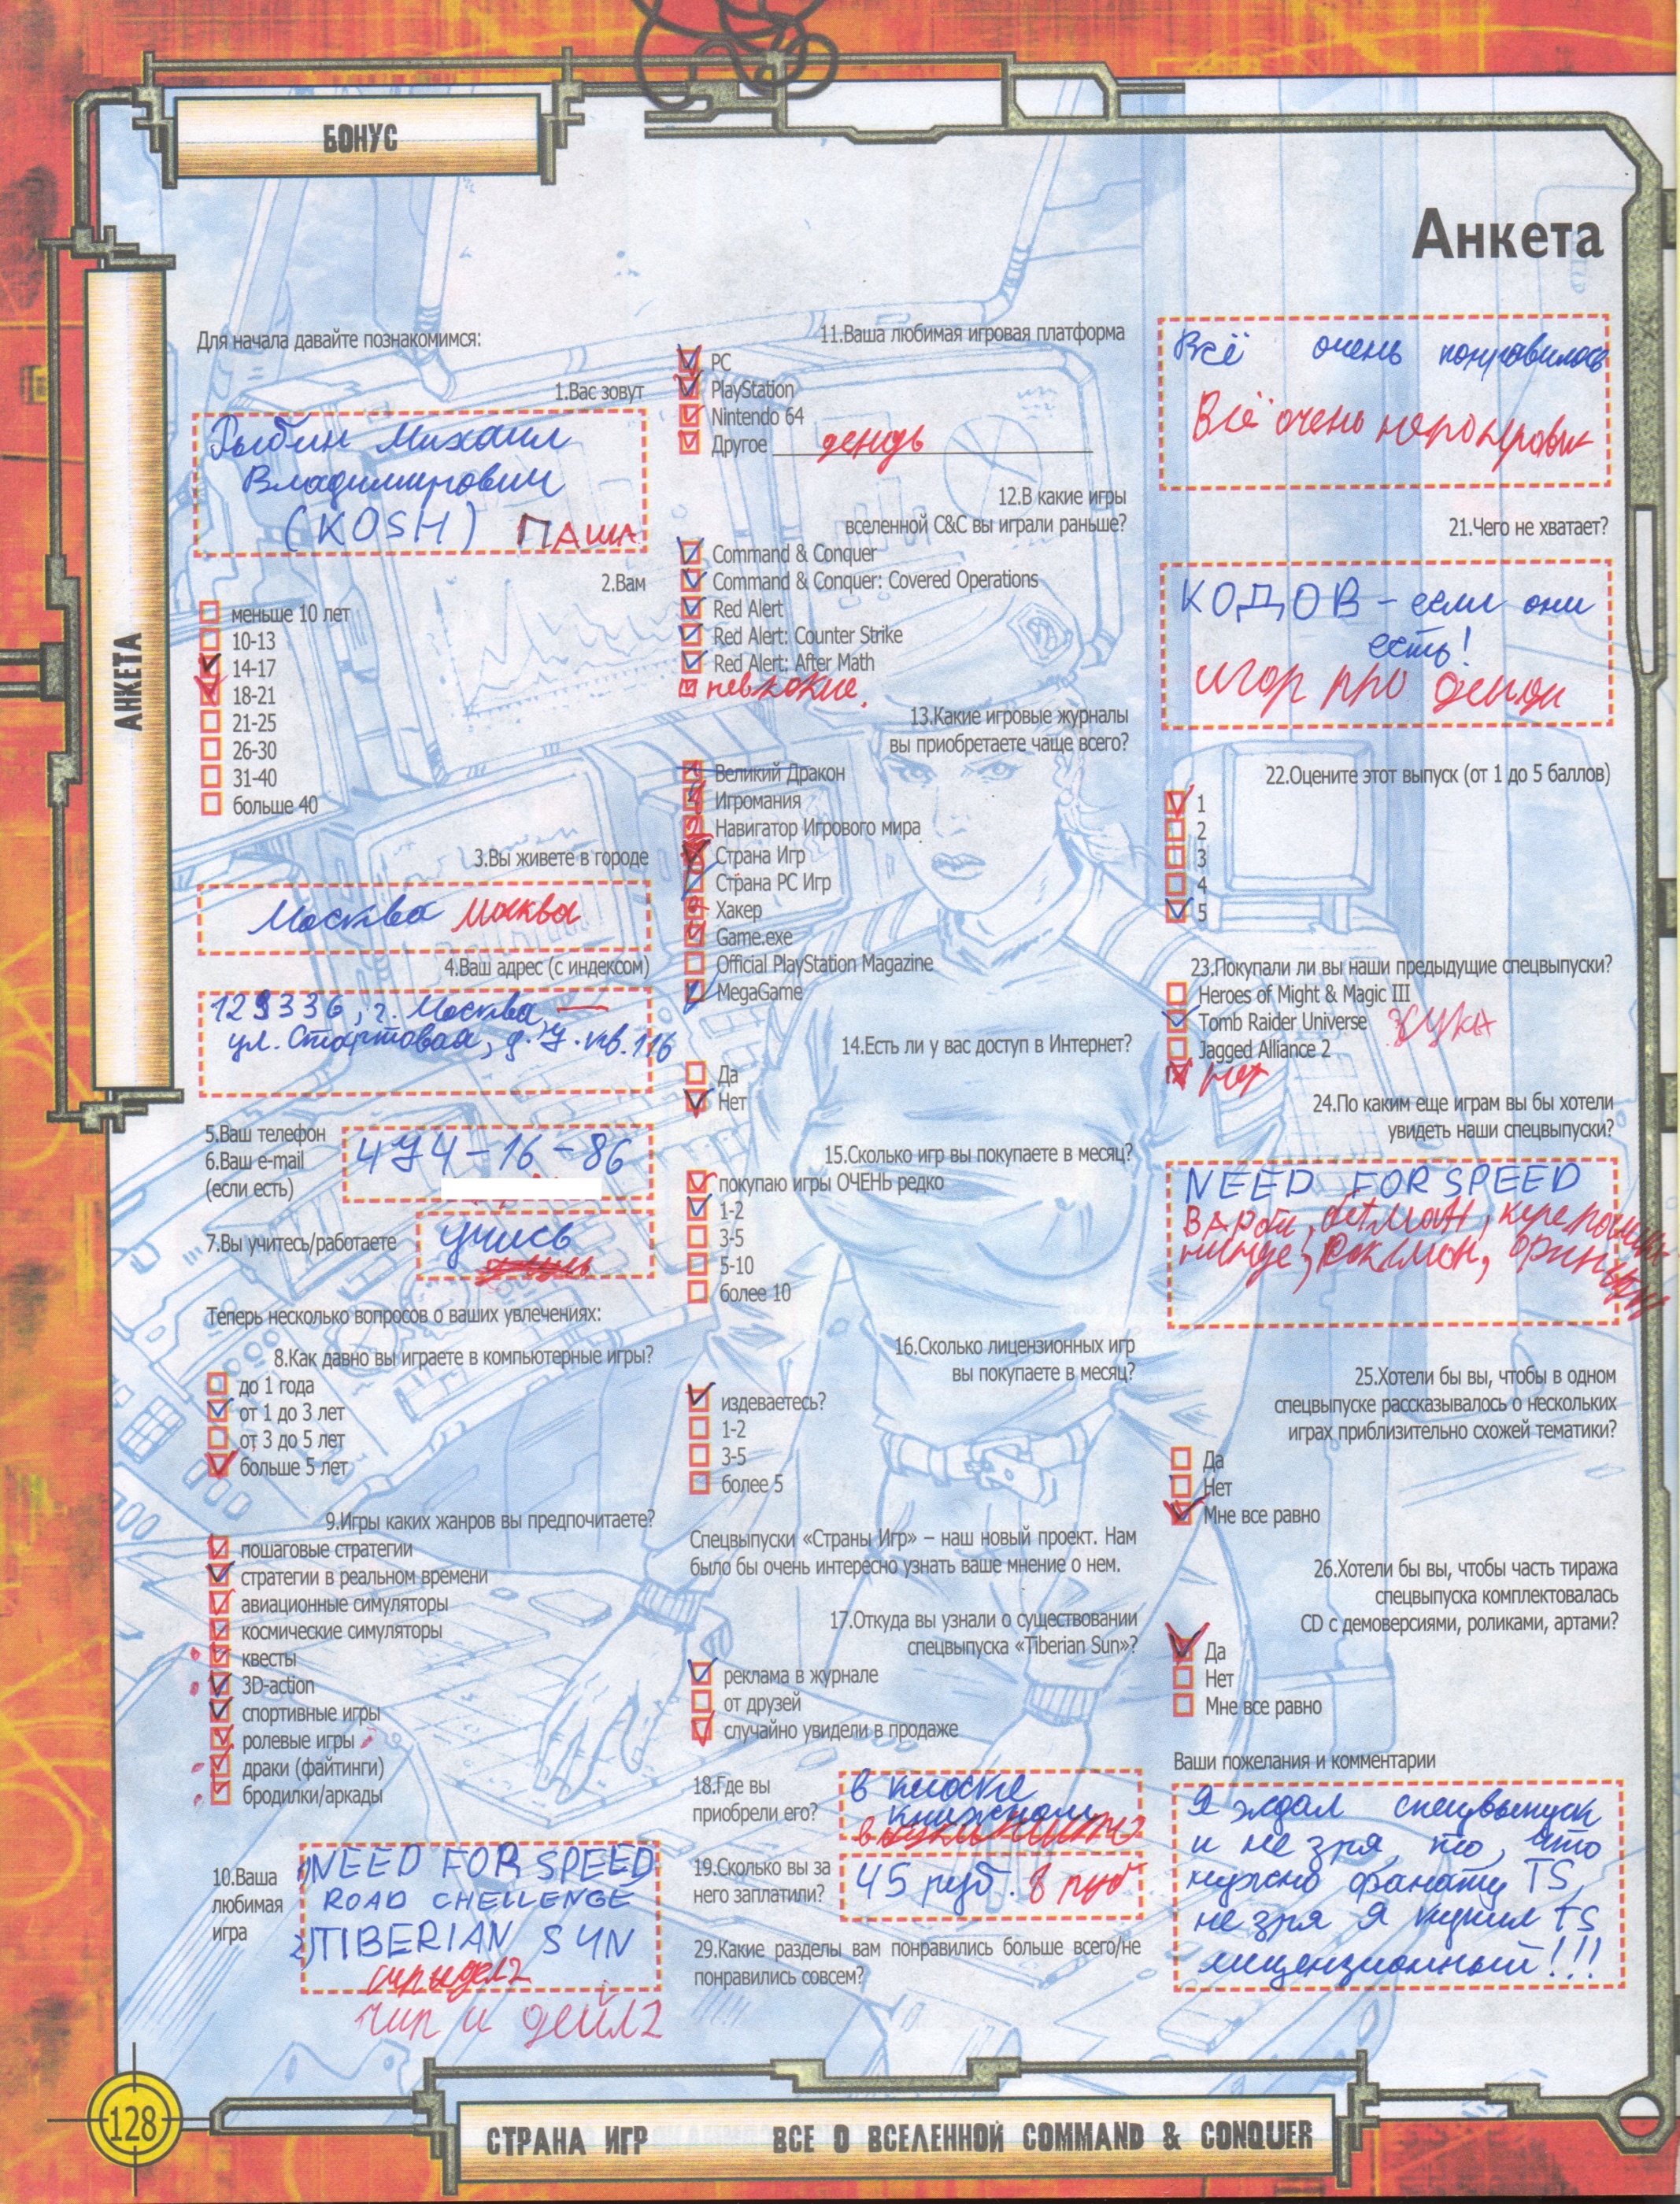 БОНУС
АНКЕТА
Анкета
Для начала давайте познакомимся:
1.Вас зовут
Рыбин Михаил
Владимирович
(KOSH) ПАША
2.Вам
меньше 10 лет
10-13
14-17
18-21
21-25
26-30
31-40
больше 40
3.Вы живете в городе
Москва Москва
4.Ваш адрес (с индексом)
129336, г. Москва,
ул. Стартовая, д.7.кв.116
5.Ваш телефон
474-16-86
6.Ваш e-mail
(если есть)
7.Вы учитесь/работаете
учусь
Теперь несколько вопросов о ваших увлечениях:
8.Как давно вы играете в компьютерные игры?
до 1 года
от 1 до 3 лет
от 3 до 5 лет
больше 5 лет
9.Игры каких жанров вы предпочитаете?
пошаговые стратегии
стратегии в реальном времени
авиационные симуляторы
космические симуляторы
квесты
3D-action
спортивные игры
ролевые игры
драки (файтинги)
бродилки/аркады
10.Ваша
любимая
игра
1)NEED FOR SPEED
ROAD CHELLENGE
2)TIBERIAN SUN
чип и дейл2
11.Ваша любимая игровая платформа
PC
PlayStation
Nintendo 64
Другое дендь
12.В какие игры
вселенной C&C вы играли раньше?
Command & Conquer
Command & Conquer: Covered Operations
Red Alert
Red Alert: Counter Strike
Red Alert: After Math
13.Какие игровые журналы
вы приобретаете чаще всего?
Великий Дракон
Игромания
Навигатор Игрового мира
Страна Игр
Страна PC Игр
Хакер
Game.exe
Official PlayStation Magazine
MegaGame
14.Есть ли у вас доступ в Интернет?
Да
Нет
15.Сколько игр вы покупаете в месяц?
покупаю игры ОЧЕНЬ редко
1-2
3-5
5-10
более 10
16.Сколько лицензионных игр
вы покупаете в месяц?
издеваетесь?
1-2
3-5
более 5
Спецвыпуски «Страны Игр» – наш новый проект. Нам
было бы очень интересно узнать ваше мнение о нем.
17.Откуда вы узнали о существовании
спецвыпуска «Tiberian Sun»?
реклама в журнале
от друзей
случайно увидели в продаже
18.Где вы
приобрели его?
в киоске
книжном
19.Сколько вы за
него заплатили?
45 руб. 8 руб
29.Какие разделы вам понравились больше всего/не
понравились совсем?
Всё очень понравилось
Всё очень
21.Чего не хватает?
КОДОВ – если они
есть!
игор про денди
22.Оцените этот выпуск (от 1 до 5 баллов)
1
2
3
4
5
23.Покупали ли вы наши предыдущие спецвыпуски?
Heroes of Might & Magic III
Tomb Raider Universe
Jagged Alliance 2
нет
24.По каким еще играм вы бы хотели
увидеть наши спецвыпуски?
NEED FOR SPEED
25.Хотели бы вы, чтобы в одном
спецвыпуске рассказывалось о нескольких
играх приблизительно схожей тематики?
Да
Нет
Мне все равно
26.Хотели бы вы, чтобы часть тиража
спецвыпуска комплектовалась
CD с демоверсиями, роликами, артами?
Да
Нет
Мне все равно
Ваши пожелания и комментарии
Я ждал спецвыпуск
и не зря, то, что
нужно фанату TS,
не зря я купил TS
лицензионный!!!
128
СТРАНА ИГР ВСЕ О ВСЕЛЕННОЙ COMMAND & CONQUER